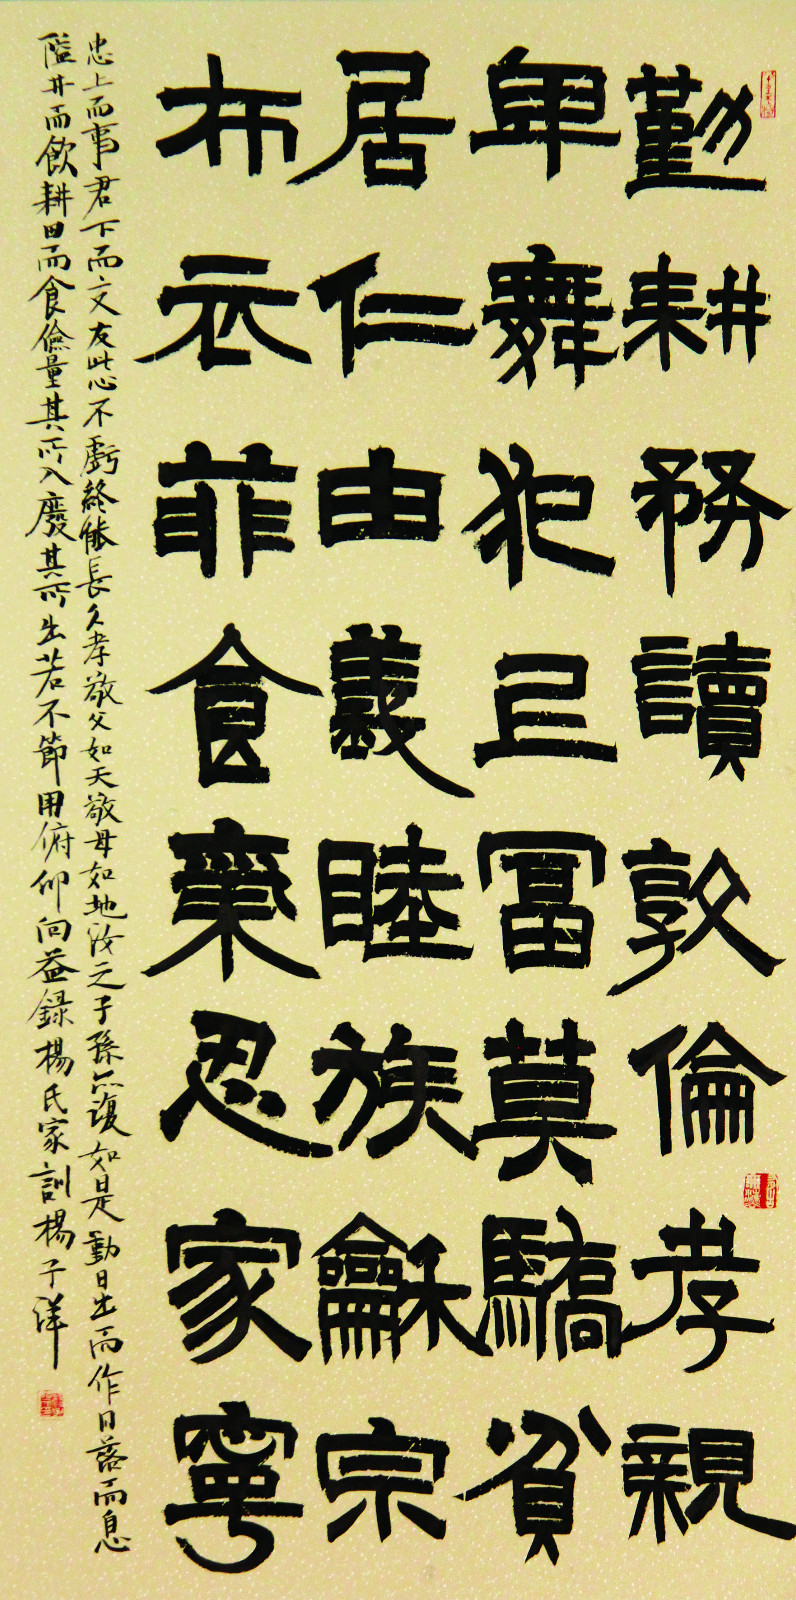 勤耕務讀敦倫孝親
卑舞犯富莫驕貧
居仁由義睦族龢宗
布衣菲食棄忍家寧
忠上而事君下而交友此心不虧終能長久孝敬父如天敬母如地汝之子孫亦復如是勤日出而作日落而息
井而飲耕田而食儉量其所入廢其所出若不節用俯仰向益錄楊氏家訓楊子洋